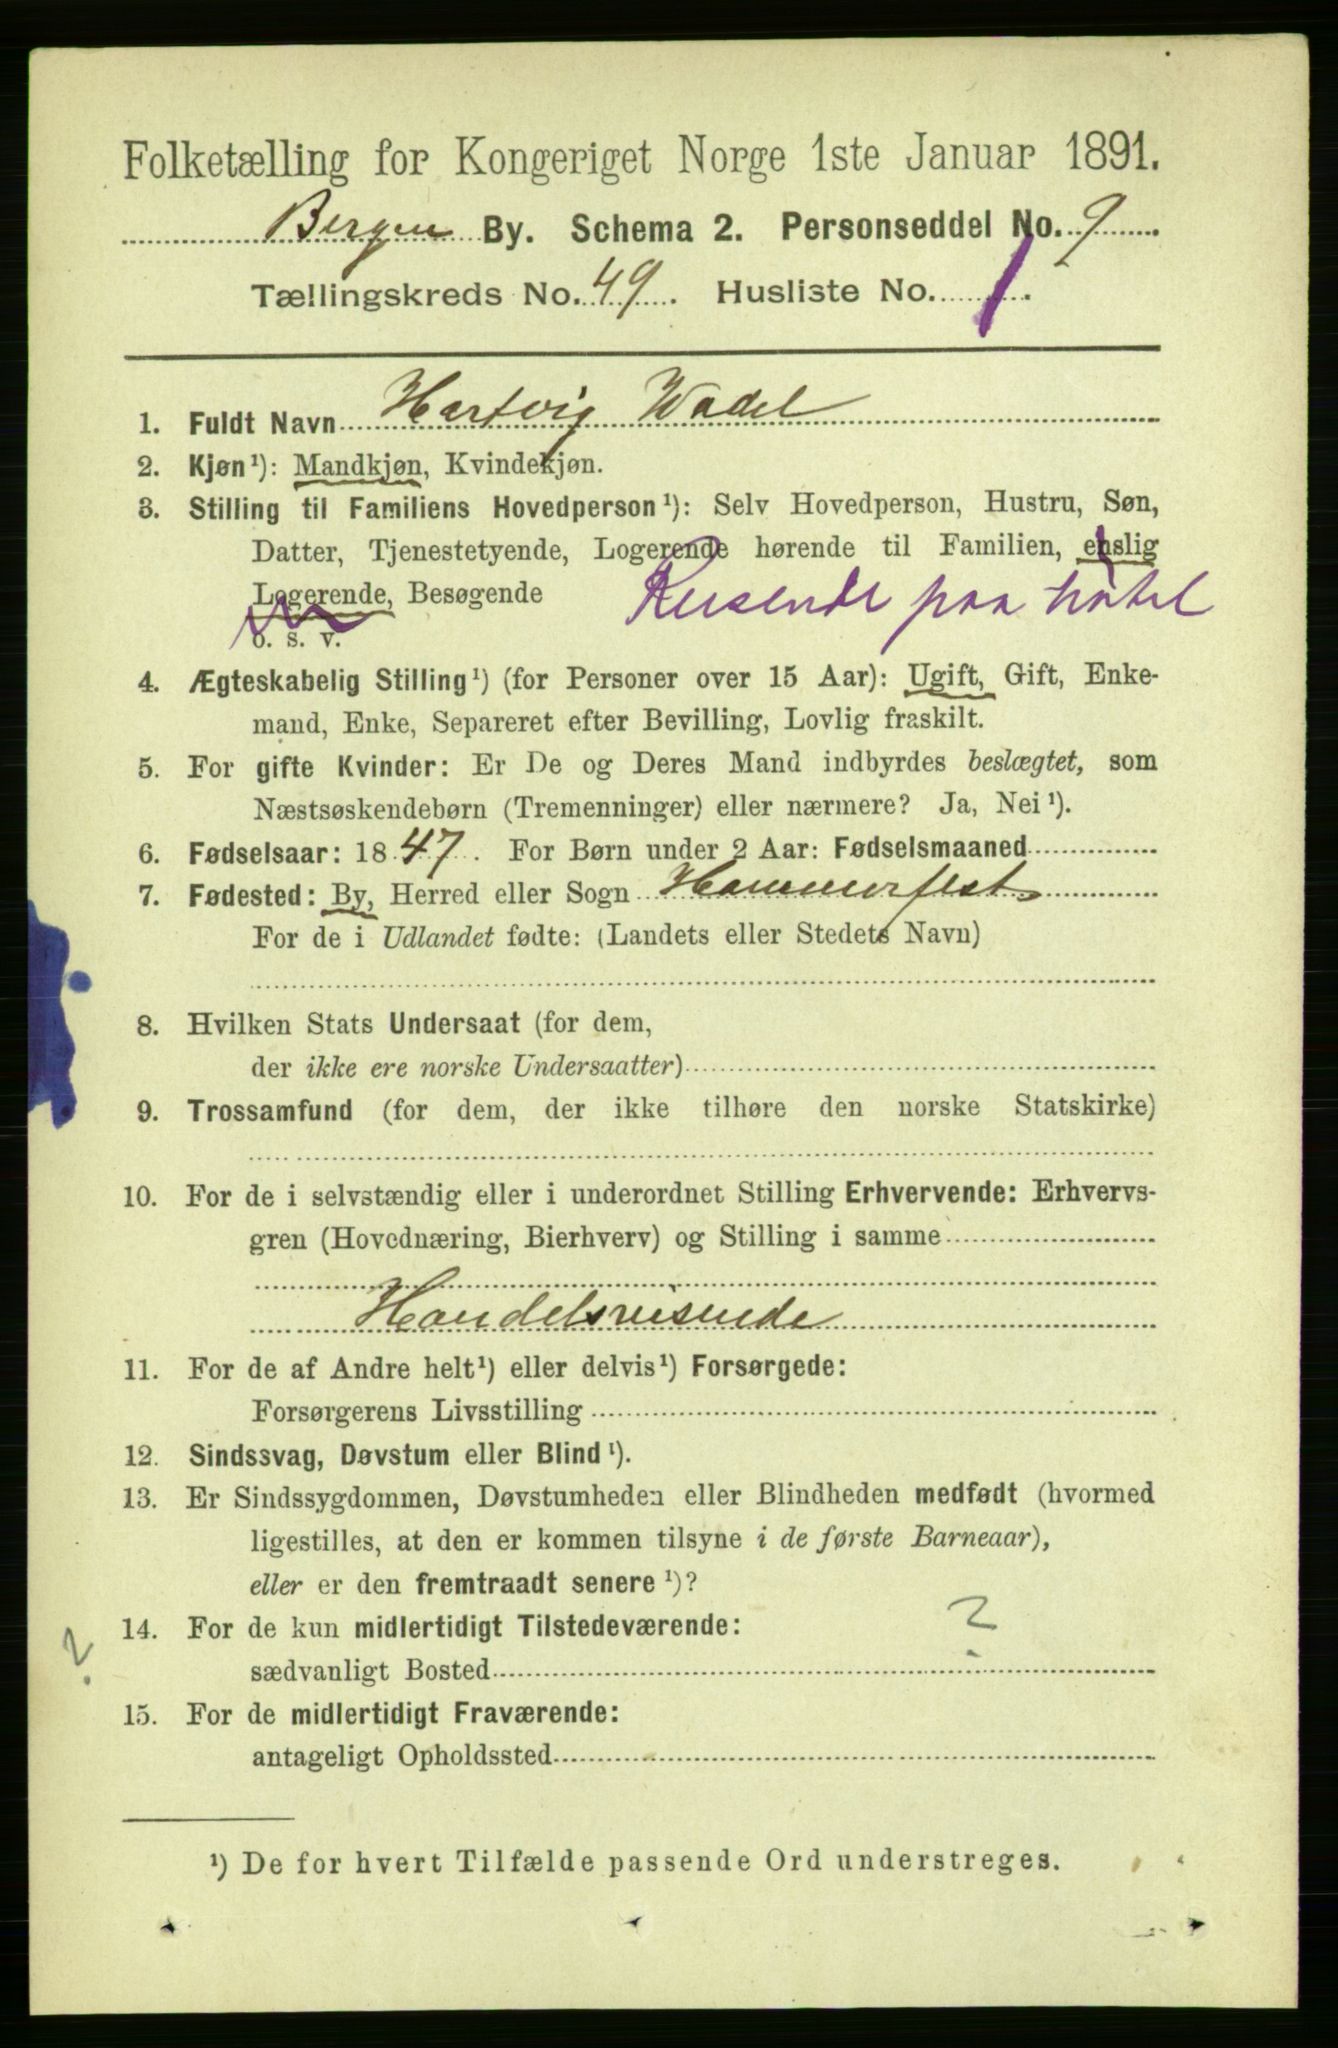 Folketælling for Kongeriget Norge 1ste Januar 1891.
Bergen By. Schema 2. Personseddel No. 9
Tællingskreds No. 49. Husliste No. 1.
1. Fuldt Navn Hartvig Wadel
2. Kjøn¹): Mandkjøn, Kvindekjøn.
3. Stilling til Familiens Hovedperson¹): Selv Hovedperson, Hustru, Søn,
Datter, Tjenestetyende, Logerende hørende til Familien, enslig
Logerende, Besøgende Reisende paa hotel
o. s. v.
4. Ægteskabelig Stilling¹) (for Personer over 15 Aar): Ugift, Gift, Enke-
mand, Enke, Separeret efter Bevilling, Lovlig fraskilt.
5. For gifte Kvinder: Er De og Deres Mand indbyrdes beslægtet, som
Næstsøskendebørn (Tremenninger) eller nærmere? Ja, Nei¹).
6. Fødselsaar: 1847. For Børn under 2 Aar: Fødselsmaaned
7. Fødested: By, Herred eller Sogn Hammerfest
For de i Udlandet fødte: (Landets eller Stedets Navn)
8. Hvilken Stats Undersaat (for dem,
der ikke ere norske Undersaatter)
9. Trossamfund (for dem, der ikke tilhøre den norske Statskirke)
10. For de i selvstændig eller i underordnet Stilling Erhvervende: Erhvervs-
gren (Hovednæring, Bierhverv) og Stilling i samme
Handelsreisende
11. For de af Andre helt¹) eller delvis¹) Forsørgede:
Forsørgerens Livsstilling
12. Sindssvag, Døvstum eller Blind¹).
13. Er Sindssygdommen, Døvstumheden eller Blindheden medfødt (hvormed
ligestilles, at den er kommen tilsyne i de første Barneaar),
eller er den fremtraadt senere¹)?
? 14. For de kun midlertidigt Tilstedeværende: ?
sædvanligt Bosted
15. For de midlertidigt Fraværende:
antageligt Opholdssted
¹) De for hvert Tilfælde passende Ord understreges.